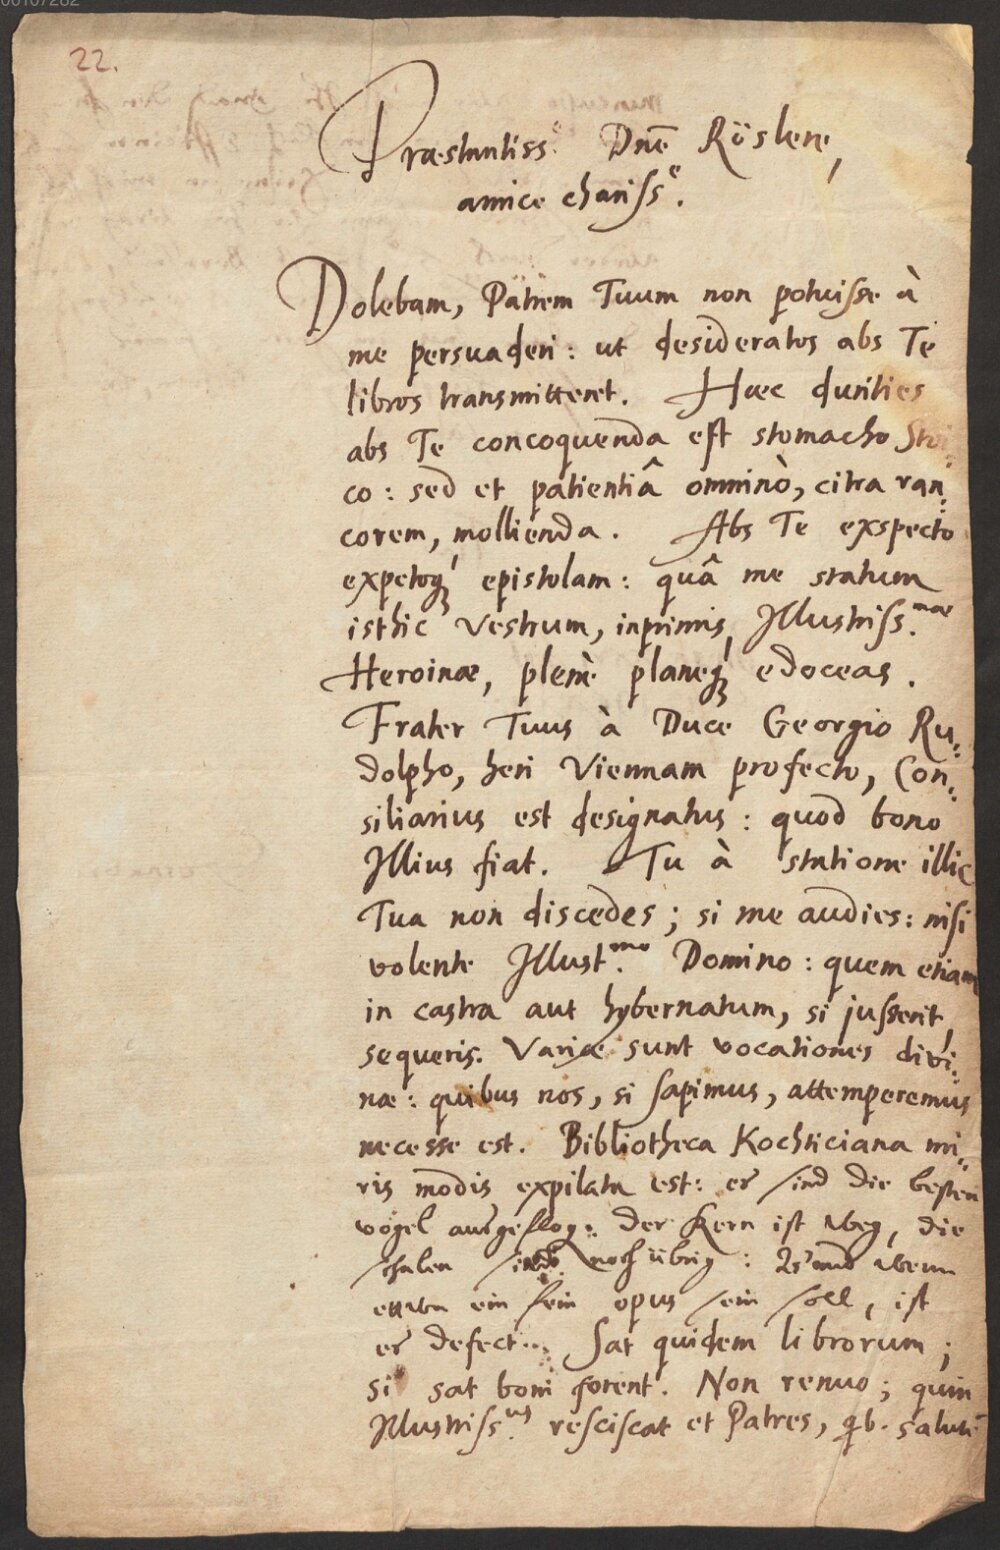 00107282
22.
Præstantiss.e Dnē Röslere,
amice chariſſe.
Dolebam, Patrem Tuum non potuiſſe à
me persuaderi: ut desideratos abs Te
libros transmitteret. Hæc durities
abs Te concoquenda eſt stomacho Stoi-
co: sed et patientiâ omninò, citra ran-
corem, mollienda. Abs Te exspecto
expetoq́ epistolam: quâ me statum
isthic Vestrum, inprimis, Illustriſs.mae
Heroinæ, plenè planeq́ edoceas.
Frater Tuus à Duce Georgio Ru-
dolpho, heri Viennam profecto, Con-
siliarius est designatus: quod bono
Illius fiat. Tu à statione illic
Tua non discedes; si me audies: niſi
volente Illust.mo Domino: quem etiam
in castra aut hybernatum, si juſſerit,
sequeris. Variæ sunt vocationes divi-
næ: quibus nos, si ſapimus, attemperemus
necesse est. Bibliotheca Kochticiana mi-
ris modis expilata est: es ſind die beſten
vögel ausgeflog: der Kern iſt weg, die
ſchalen ſind noch übrig: Und wenn
etwan ein fein opus ſein ſoll, iſt
es defect. Sat quidem librorum;
si sat boni forent. Non renuo; quin
Illustriſs.us reſciſcat et Patres, qb. salutē